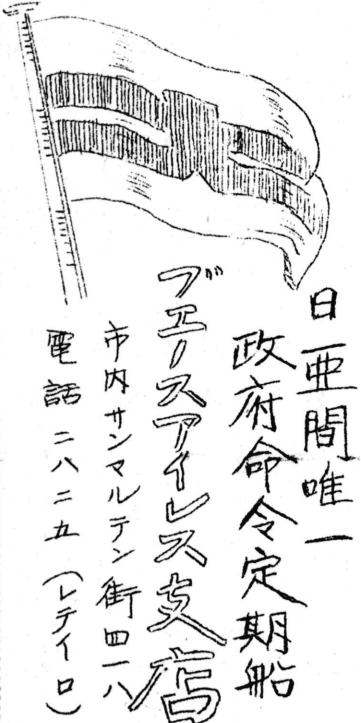 日亜間唯一
政府命令定期船
ブエノスアイレス支店
市内サンマルテン街四一八
電話二八二五（レテイロ）